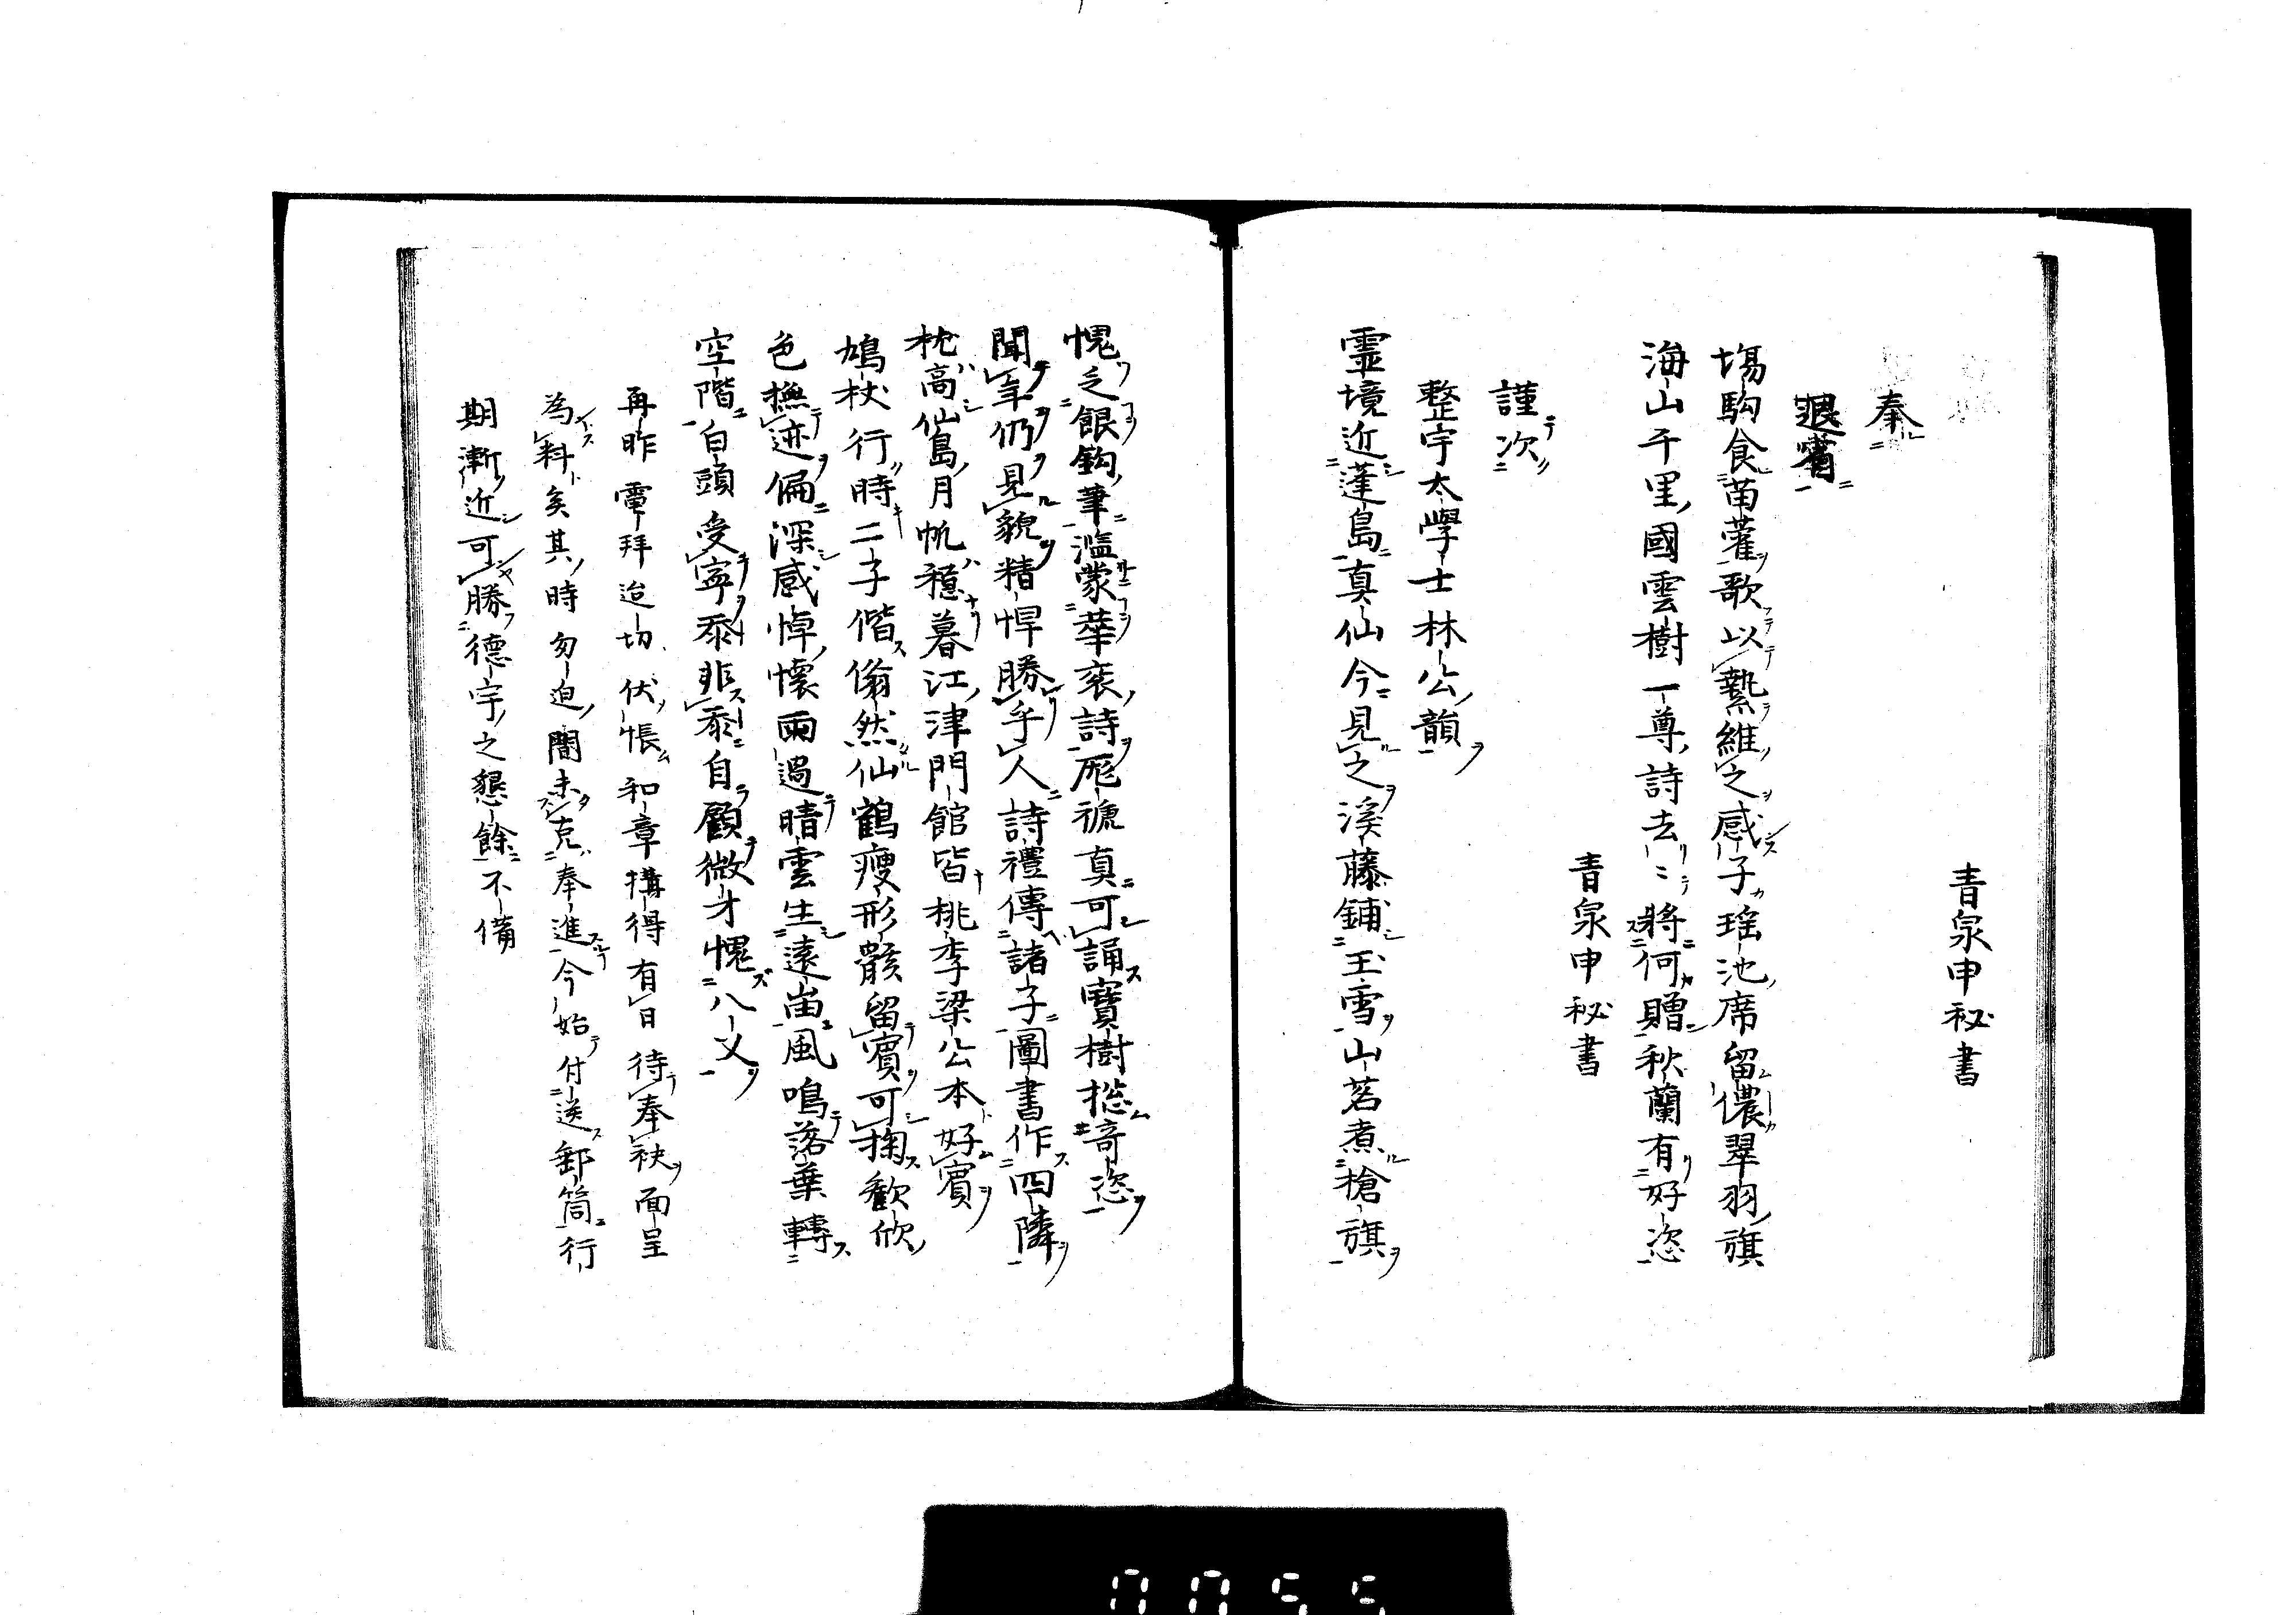 青泉申秘書
奉
塲駒食苗藿歌以縶維之感子瑶池席留儂翠羽旗
海山千里國雲樹一尊詩去〻將何贈秋蘭有好恣
青泉申秘書
謹次
整宇太學士林公韻
霊境近蓬島真仙今見之溪藤鋪玉雪山茗煮槍旗
愧乏銀鈎筆濫蒙華衮詩褫真可誦寶樹揔竒恣
聞年仍見貌精悍勝乎人詩禮傳諸子圖書作四隣
枕高仙島月帆穏暮江津門館皆桃李梁公本好賓
鳩杖行時二子偕翛然仙鶴瘦形骸留賓可掬歡欣
色撫迹偏深感悼懷雨過晴雲生遠岫風鳴落葉轉
空階白頭受寧忝非忝自顧微才愧八义
再昨電拜迨切伏悵和章搆得有日待奉袂面呈
為料矣其時匆迫闇未克奉進今始付送郵筒行
期漸近可勝德宇之懇餘不備
0055